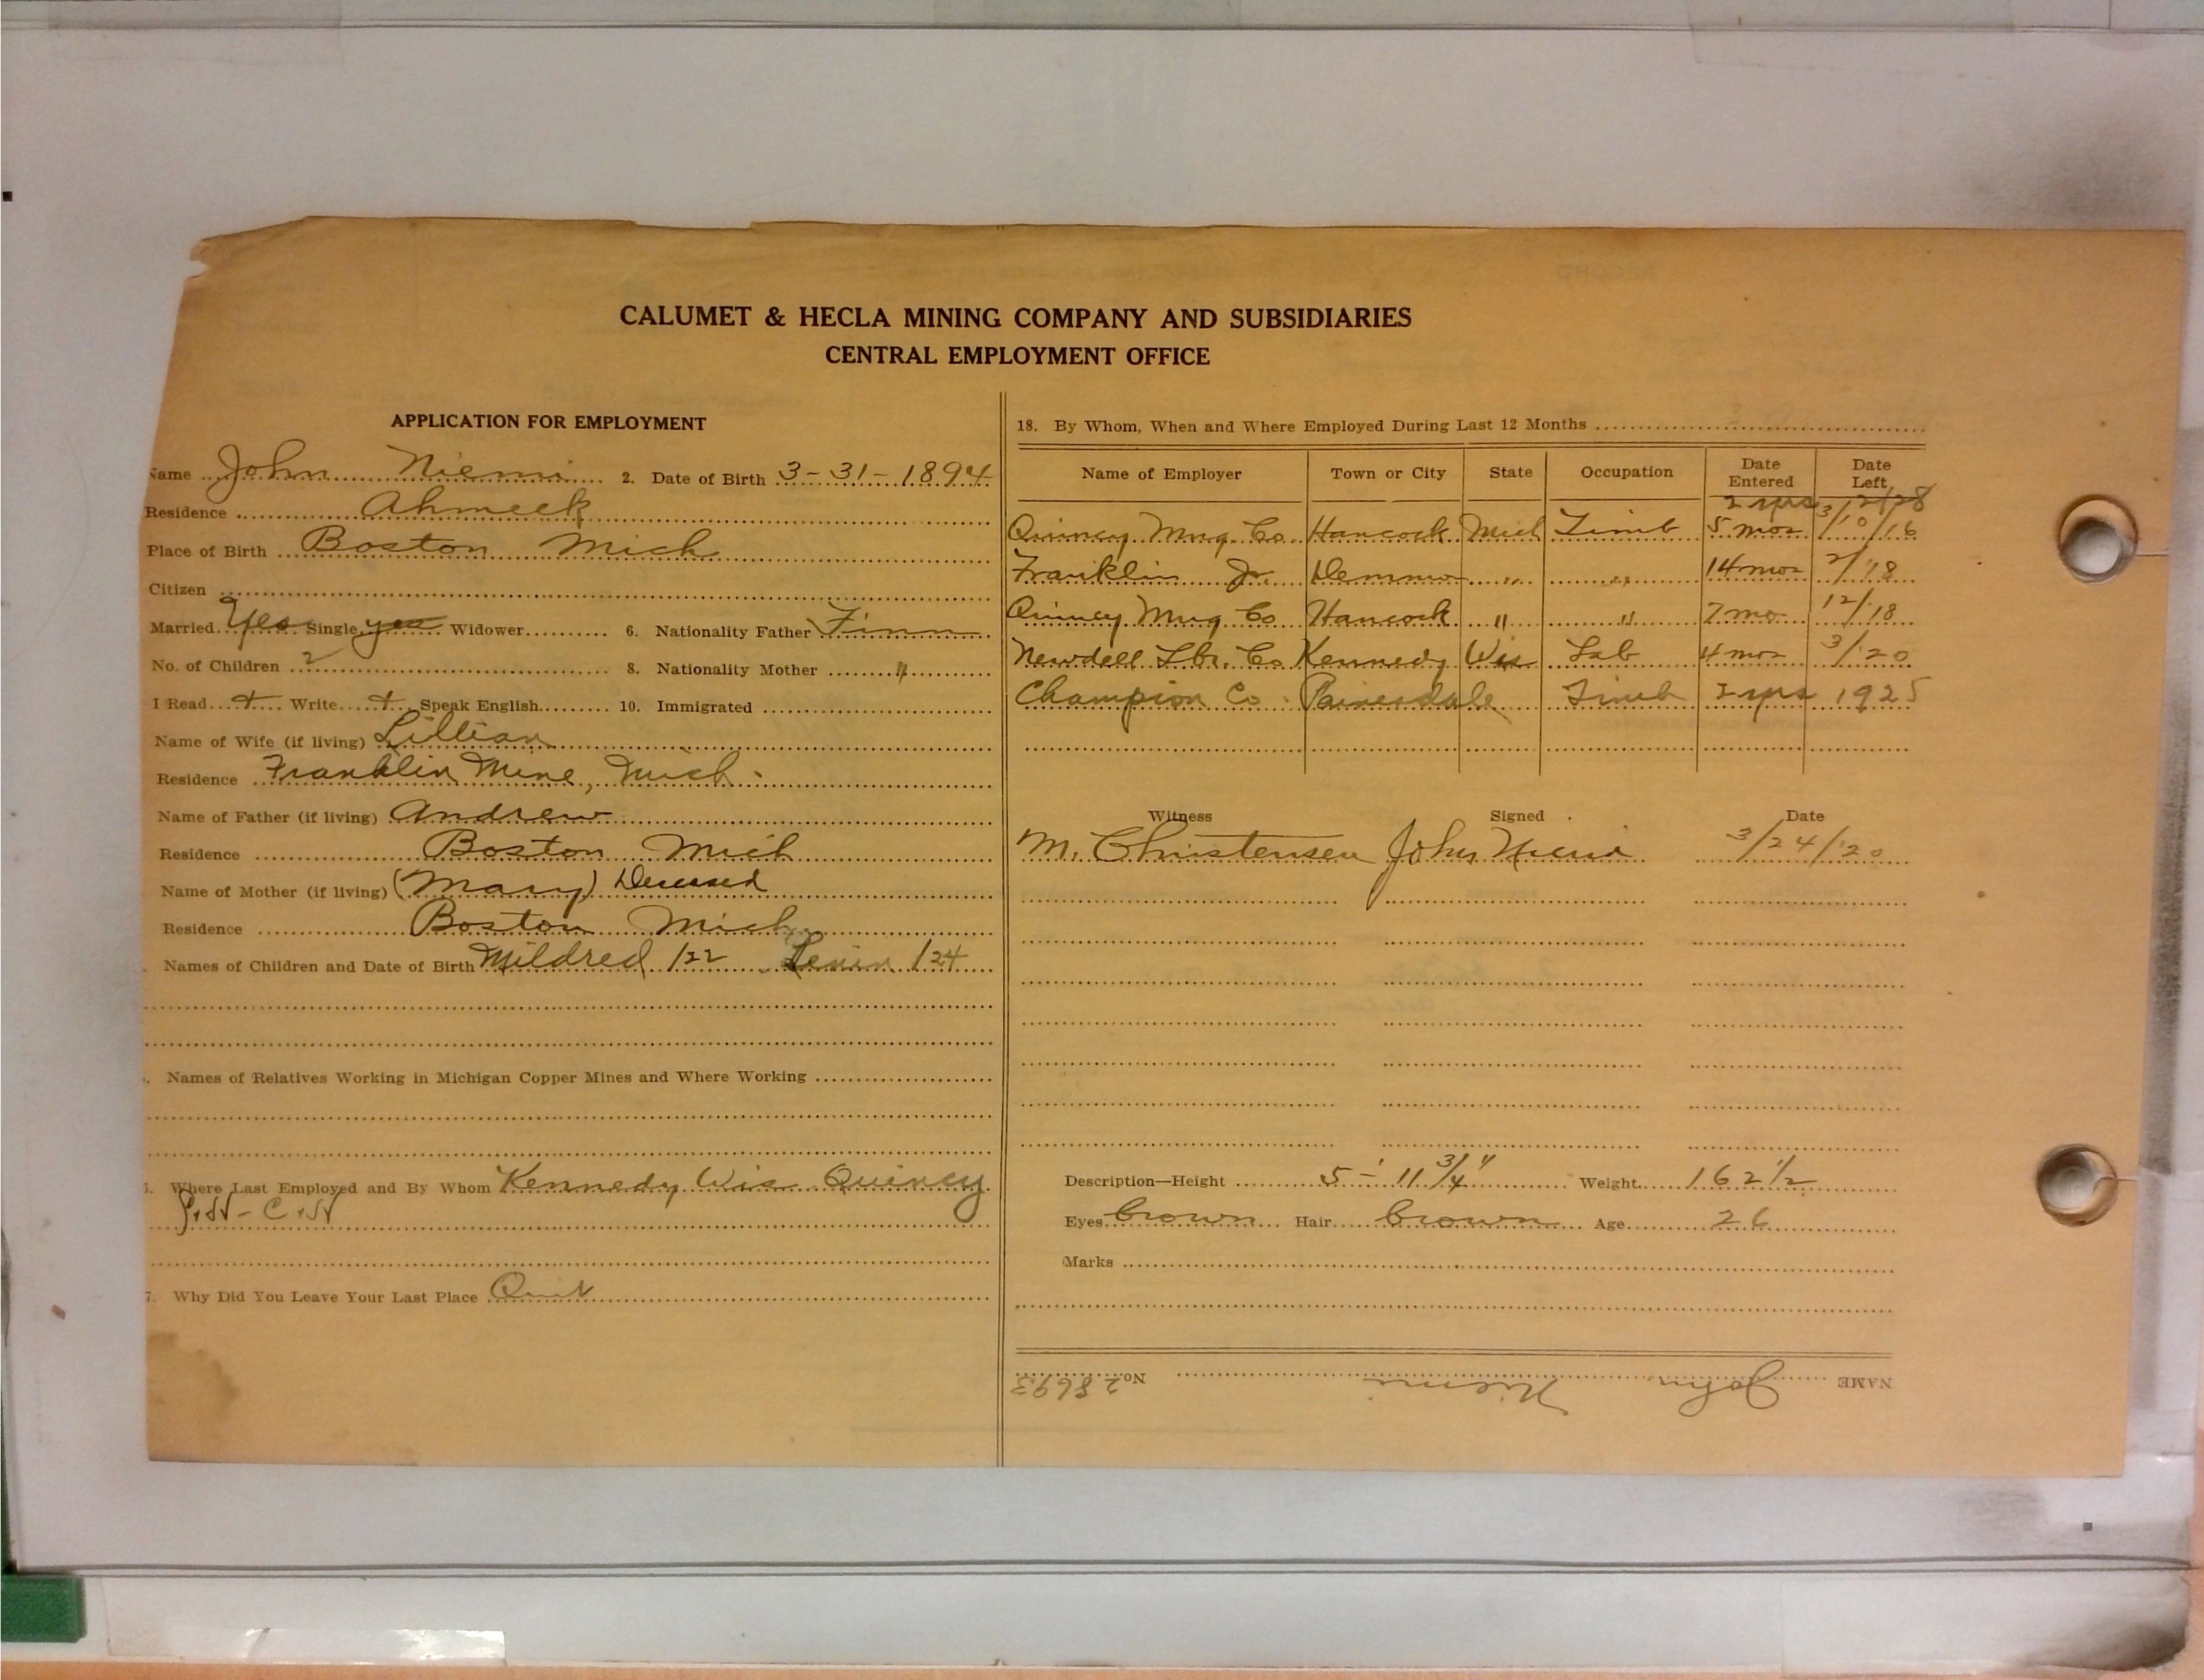 CALUMET & HECLA MINING COMPANY AND SUBSIDIARIES
CENTRAL EMPLOYMENT OFFICE
APPLICATION FOR EMPLOYMENT
Name John Niemi 2. Date of Birth 3-31-1894
Residence Ahmeek
Place of Birth Boston Mich
Citizen
Married Yes Single yes Widower 6. Nationality Father Finn
No. of Children 2 8. Nationality Mother "
I Read + Write + Speak English 10. Immigrated
Name of Wife (if living) Lillian
Residence Franklin Mine, Mich.
Name of Father (if living) Andrew
Residence Boston Mich
Name of Mother (if living) (Mary) Deceased
Residence Boston Mich
Names of Children and Date of Birth Mildred 1/22 1/24
Names of Relatives Working in Michigan Copper Mines and Where Working
Where Last Employed and By Whom Kennedy Wis Quincy
7. Why Did You Leave Your Last Place Quit
18. By Whom, When and Where Employed During Last 12 Months
Name of Employer Town or City State Occupation Date Entered Date Left
2 yrs 3/2/28
Quincy Mng Co Hancock Mich Timb 5 mos 10/16
Franklin Jr. Demmon " " 14 mos 2/18
Quincy Mng Co Hancock " " 7 mo 12/18
Newdell Lbr. Co Kennedy Wis Lab 4 mos 3/20
Champion Co Painesdale Timb 2 yrs 1925
Witness Signed Date
M. Christensen John Niemi 3/24/20
Description—Height 5' - 11 3/4" Weight 162 1/2
Eyes brown Hair brown Age 26
Marks
NAME John Niemi No. 28693